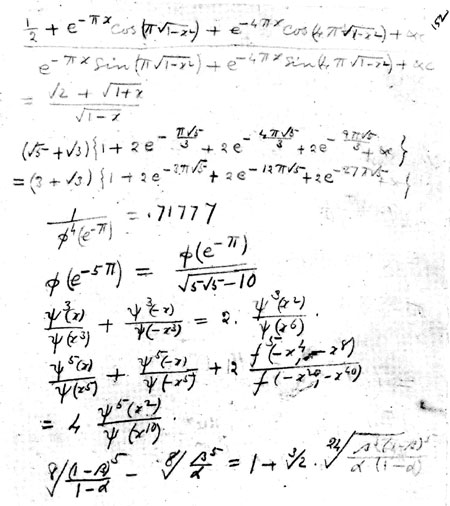 152
1/2 + e^{-πx} cos(π√(1-x²)) + e^{-4πx} cos(4π√(1-x²)) + &c
e^{-πx} sin(π√(1-x²)) + e^{-4πx} sin(4π√(1-x²)) + &c
= (√2 + √(1+x)) / √(1-x)
(√5 + √3) {1 + 2e^{-π√5/3} + 2e^{-4π√5/3} + 2e^{-9π√5/3} + &c}
= (3 + √3) {1 + 2e^{-3π√5} + 2e^{-12π√5} + 2e^{-27π√5} + &c}
1/φ⁴(e^{-π}) = .71777
φ(e^{-5π}) = φ(e^{-π}) / √(5√5 - 10)
ψ³(x)/ψ(x³) + ψ³(-x)/ψ(-x³) = 2. ψ³(x²)/ψ(x⁶).
ψ⁵(x)/ψ(x⁵) + ψ⁵(-x)/ψ(-x⁵) + 2 f⁵(-x⁴, -x⁸)/f(-x²⁰, -x⁴⁰)
= 4 ψ⁵(x²)/ψ(x¹⁰).
⁸√((1-β)⁵/(1-α)) - ⁸√(β⁵/α) = 1 + ³√2. ²⁴√(β⁵(1-β)⁵/α(1-α))